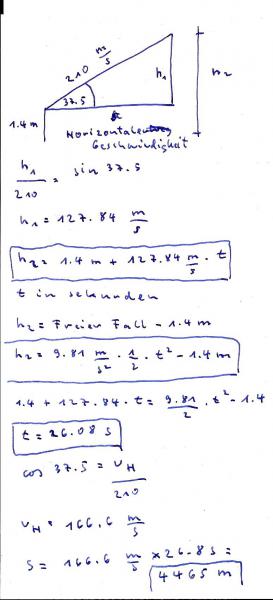 210 m/s
h₁
h₂
37.5
1.4 m
Horizontale
Geschwindigkeit
h₁/210 = sin 37.5
h₁ = 127.84 m/s
h₂ = 1.4 m + 127.84 m/s · t
t in sekunden
h₂ = Freier Fall - 1.4 m
h₂ = 9.81 m/s² · 1/2 · t² - 1.4 m
1.4 + 127.84 · t = 9.81/2 · t² - 1.4
t = 26.08 s
cos 37.5 = v_H/210
v_H = 166.6 m/s
s = 166.6 m/s × 26.8 s =
4465 m